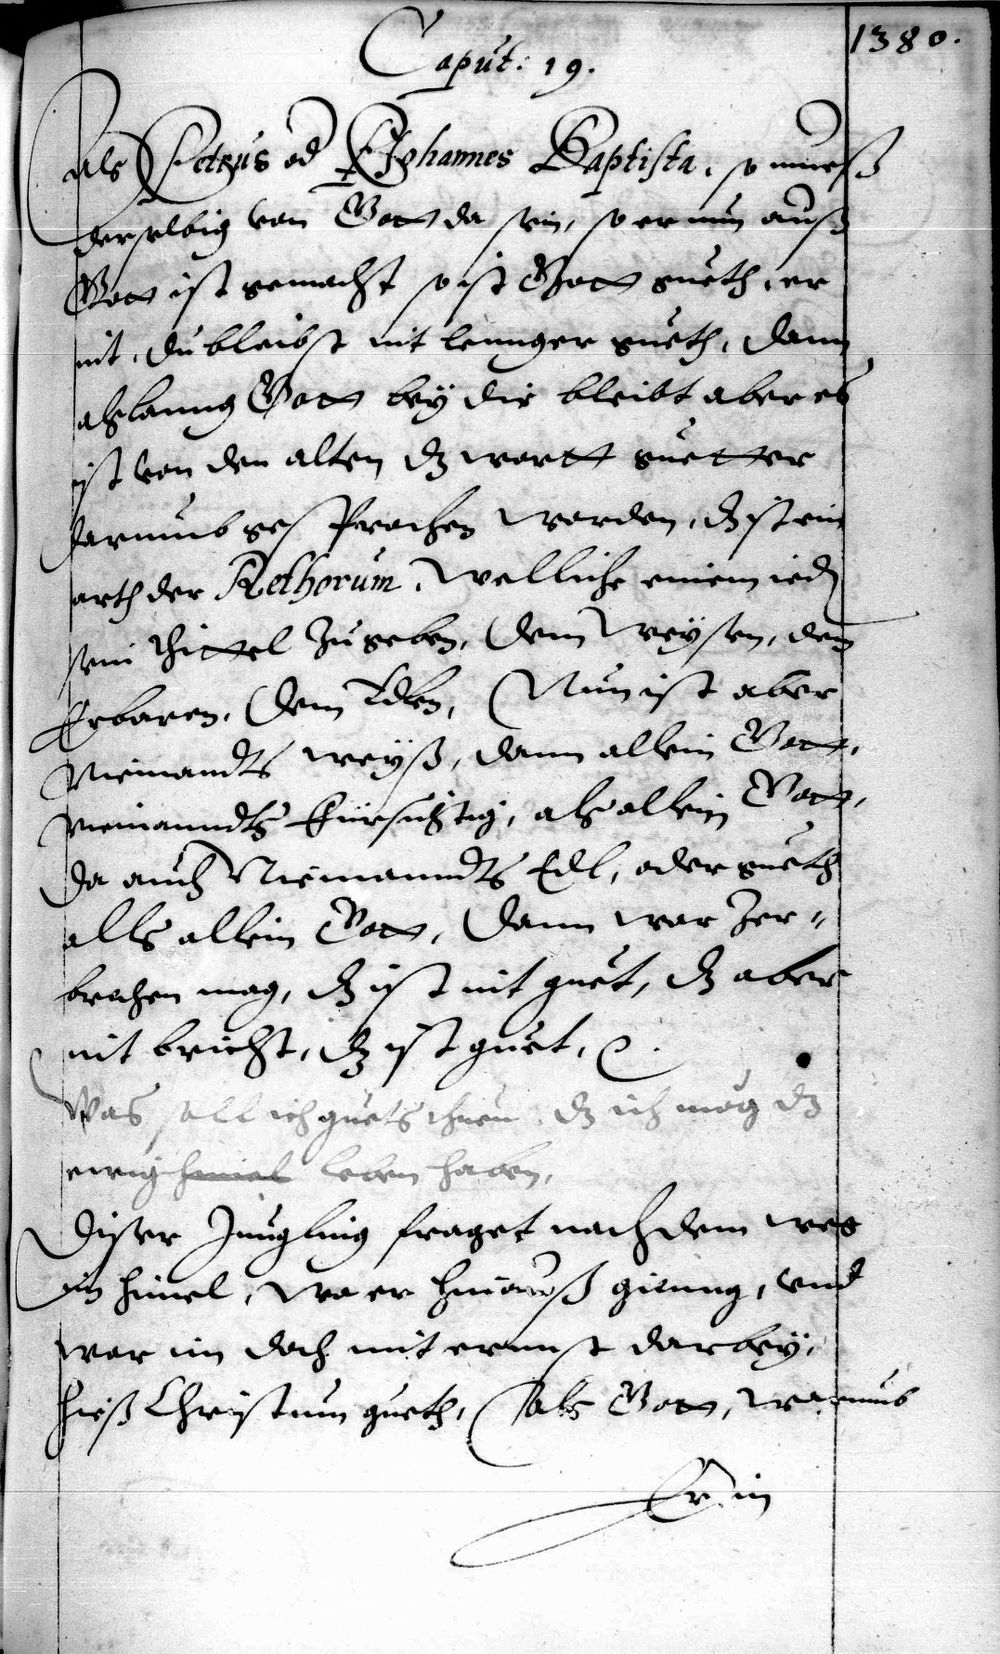 Caput: 19.
1380.
Als Petrus od Johannes Baptista, so mueß
derselbig von Gott da sein, so er nun auß
Gott ist gemacht so ist Gott gueth, er
nit, du bleibst nit lennger gueth, dann
alslanng Gott bey dir bleibt aber es
ist von den alten dz wortt guetter
darumb gesprochen worden, dz ist ein
arth der Rethorum, welliche einem ied
sein thittel zugeben, dem Weysen, dem
Erbaren, dem Edlen, Nun ist aber
Niemandts weyß, dann allein Gott,
niemanndts fürsichtig, als allein Gott,
da auch Niemanndts Edl, oder gueth
alls allein Gott, dann was zer-
brechen mag, dz ist nit guet, dz aber
nit bricht, dz ist guet,
Was soll ich guets thuen dz ich mög dz
ewig himel leben haben,
Diser Jüngling fraget nach dem weg
in himel, wa er hinauß gienng, vnd
war im doch nit ernnst darbey,
hieß Christum gueth, als Gott, warumb
Er in